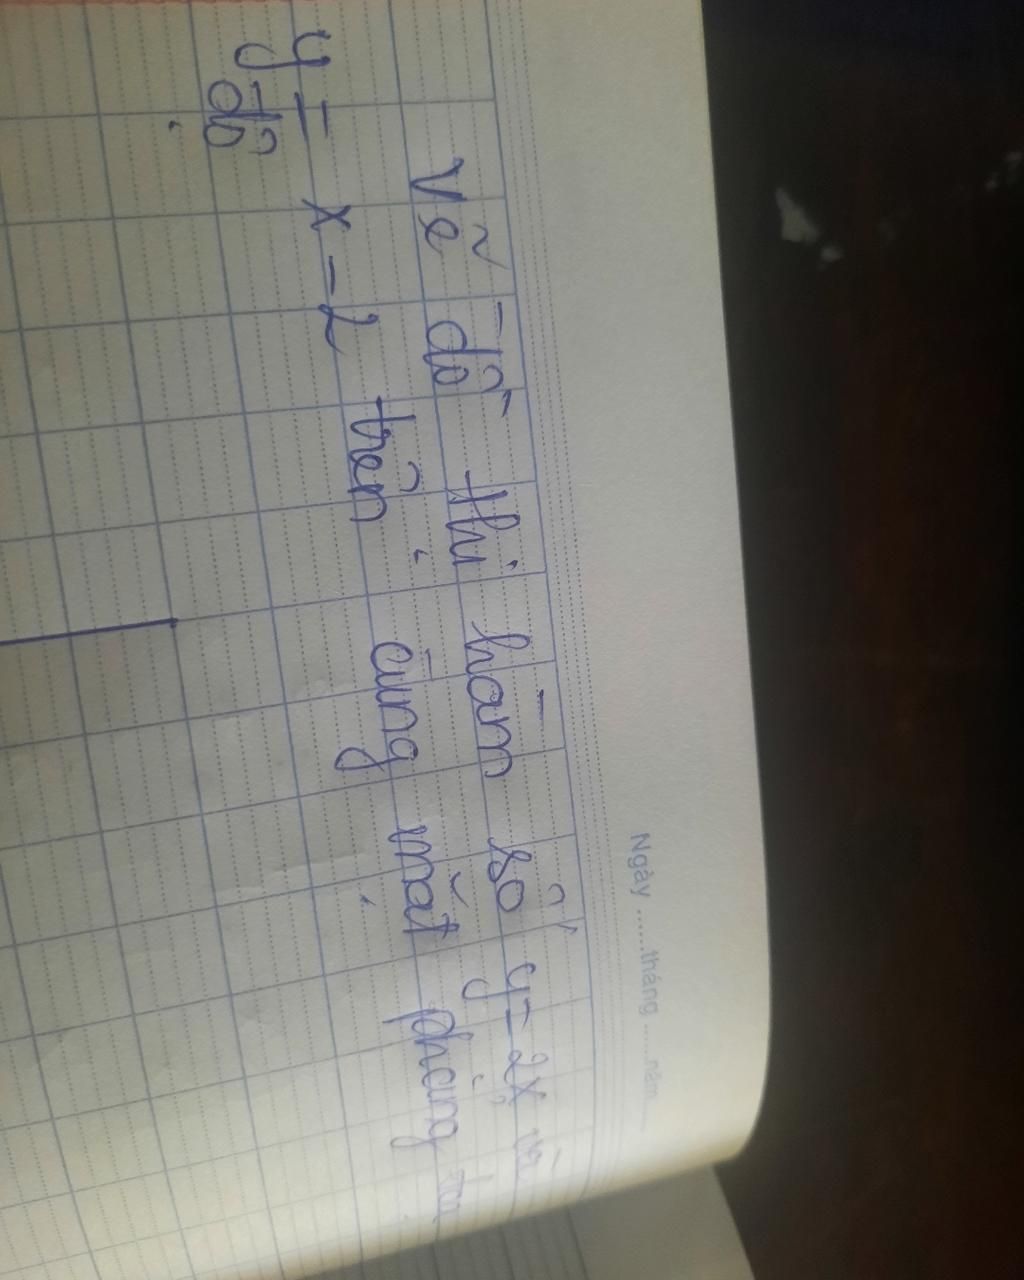 Ngày ...... tháng ...... năm
Vẽ đồ thị hàm số y = 2x và
y = x - 2 trên cùng mặt phẳng tọa
độ